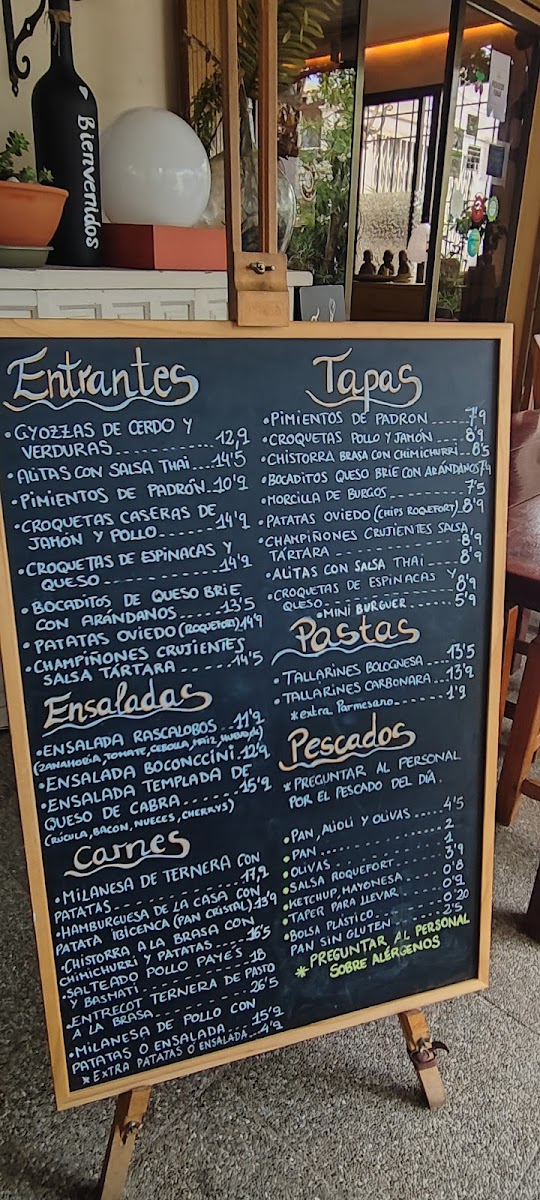 Bienvenidos
Entrantes
• GYOZZAS DE CERDO Y
VERDURAS ---------- 12,9
• ALITAS CON SALSA THAI .... 14'5
• PIMIENTOS DE PADRÓN .. 10'9
• CROQUETAS CASERAS DE
JAMÓN Y POLLO -------- 14'9
• CROQUETAS DE ESPINACAS Y
QUESO ------------ 14'9
• BOCADITOS DE QUESO BRIE
CON ARÁNDANOS ------ 13'5
• PATATAS OVIEDO (ROQUEFORT) 14'9
• CHAMPIÑONES CRUJIENTES
SALSA TÁRTARA ------- 14'5
Ensaladas
• ENSALADA RASCALOBOS .. 11'9
(ZANAHORIA, TOMATE, CEBOLLA, MAIZ, HUEVO)
• ENSALADA BOCONCCINI .. 12'9
• ENSALADA TEMPLADA DE
QUESO DE CABRA ------ 15'9
(RÚCULA, BACON, NUECES, CHERRYS)
Carnes
• MILANESA DE TERNERA CON
PATATAS ------------ 17,9
• HAMBURGUESA DE LA CASA CON
PATATA IBICENCA (PAN CRISTAL) .. 13'9
• CHISTORRA A LA BRASA CON
CHIMICHURRI Y PATATAS ---- 16'5
• SALTEADO POLLO PAYÉS
Y BASMATI ---------- 18
• ENTRECOT TERNERA DE PASTO
A LA BRASA ---------- 26'5
• MILANESA DE POLLO CON
PATATAS O ENSALADA ---- 15'9
* EXTRA PATATAS O ENSALADA .... 4'9
Tapas
• PIMIENTOS DE PADRON ------ 7'9
• CROQUETAS POLLO Y JAMÓN --- 8'9
• CHISTORRA BRASA CON CHIMICHURRI .. 8'5
• BOCADITOS QUESO BRIE CON ARÁNDANOS 7'9
• MORCILLA DE BURGOS -------- 7'5
• PATATAS OVIEDO (CHIPS ROQUEFORT) . 8'9
• CHAMPIÑONES CRUJIENTES SALSA
TÁRTARA -------------- 8'9
• ALITAS CON SALSA THAI ---- 8'9
• CROQUETAS DE ESPINACAS Y
QUESO -------------- 8'9
• MINI BURGUER ------ 5'9
Pastas
• TALLARINES BOLOGNESA .... 13'5
• TALLARINES CARBONARA .. 13'9
* extra Parmesano ------- 1'9
Pescados
* PREGUNTAR AL PERSONAL
POR EL PESCADO DEL DÍA.
• PAN, ALIOLI Y OLIVAS ---- 4'5
• PAN -------------- 2
• OLIVAS ------------ 1
• SALSA ROQUEFORT ------ 3'9
• KETCHUP, MAYONESA ----- 0'8
• TAPER PARA LLEVAR ----- 0'9
• BOLSA PLÁSTICO ------- 0'20
PAN SIN GLUTEN ------- 2'5
* PREGUNTAR AL PERSONAL
SOBRE ALÉRGENOS